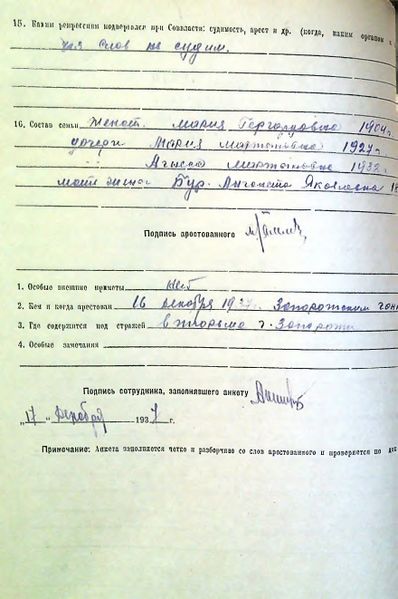 15. Каким репрессиям подвергался при Соввласти: судимость, арест и др. (когда, каким органом и
слов не судим.
16. Состав семьи Женат. Мария 1904
дочери Мария Мартыновна 1927 г.
Мартыновна 1932
мать жены Бур. Яковлевна 18
Подпись арестованного
1. Особые внешние приметы нет
2. Кем и когда арестован 16 декабря 1937 г. Запорожским
3. Где содержится под стражей в тюрьме г. Запорожья
4. Особые замечания
Подпись сотрудника, заполнявшего анкету
„17“ декабря 1937 г.
Примечание: Анкета заполняется четко и разборчиво со слов арестованного и проверяется по